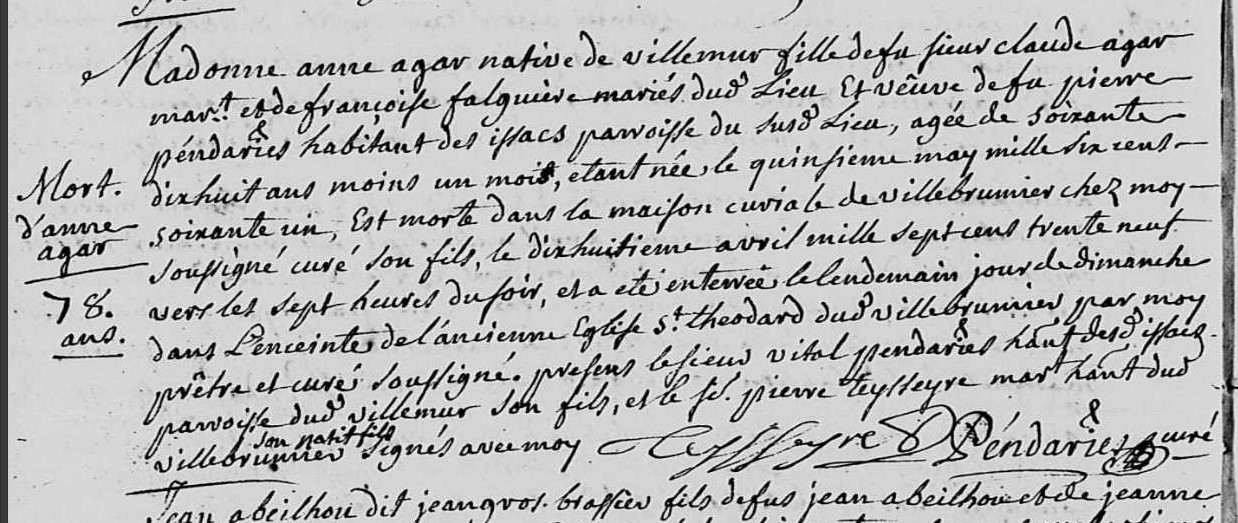 Madonne anne agar native de villemur fille de fu sieur claude agar
mar.t et de françoise falguière mariés dud. Lieu Et vêuve de fu pierre
péndaries habitant des issacs parroisse du susd. Lieu, agée de soixante
Mort.
d'anne
agar
78.
ans.
dixhuit ans moins un mois, etant née le quinsieme may mille six cens
soixante un, Est morte dans la maison curiale de villebrumier chez moy
soussigné curé son fils, le dixhuitieme avril mille sept cens trente neuf
vers les sept heures du soir, et a eté enterrée le lendemain jour de dimanche
dans L'enceinte de l'ancienne Eglise St. theodard dud. villebrumier par moy
prêtre et curé soussigné. presens le sieur vital pendaries hant. desd. issacs
parroisse dud. villemur son fils, et le sr. pierre teysseyre mart. hant. dud.
villebrumier signés avec moy Teysseyre Péndaries curé
Jean abeilhou dit jeangros. brassier fils de fus jean abeilhou et de jeanne